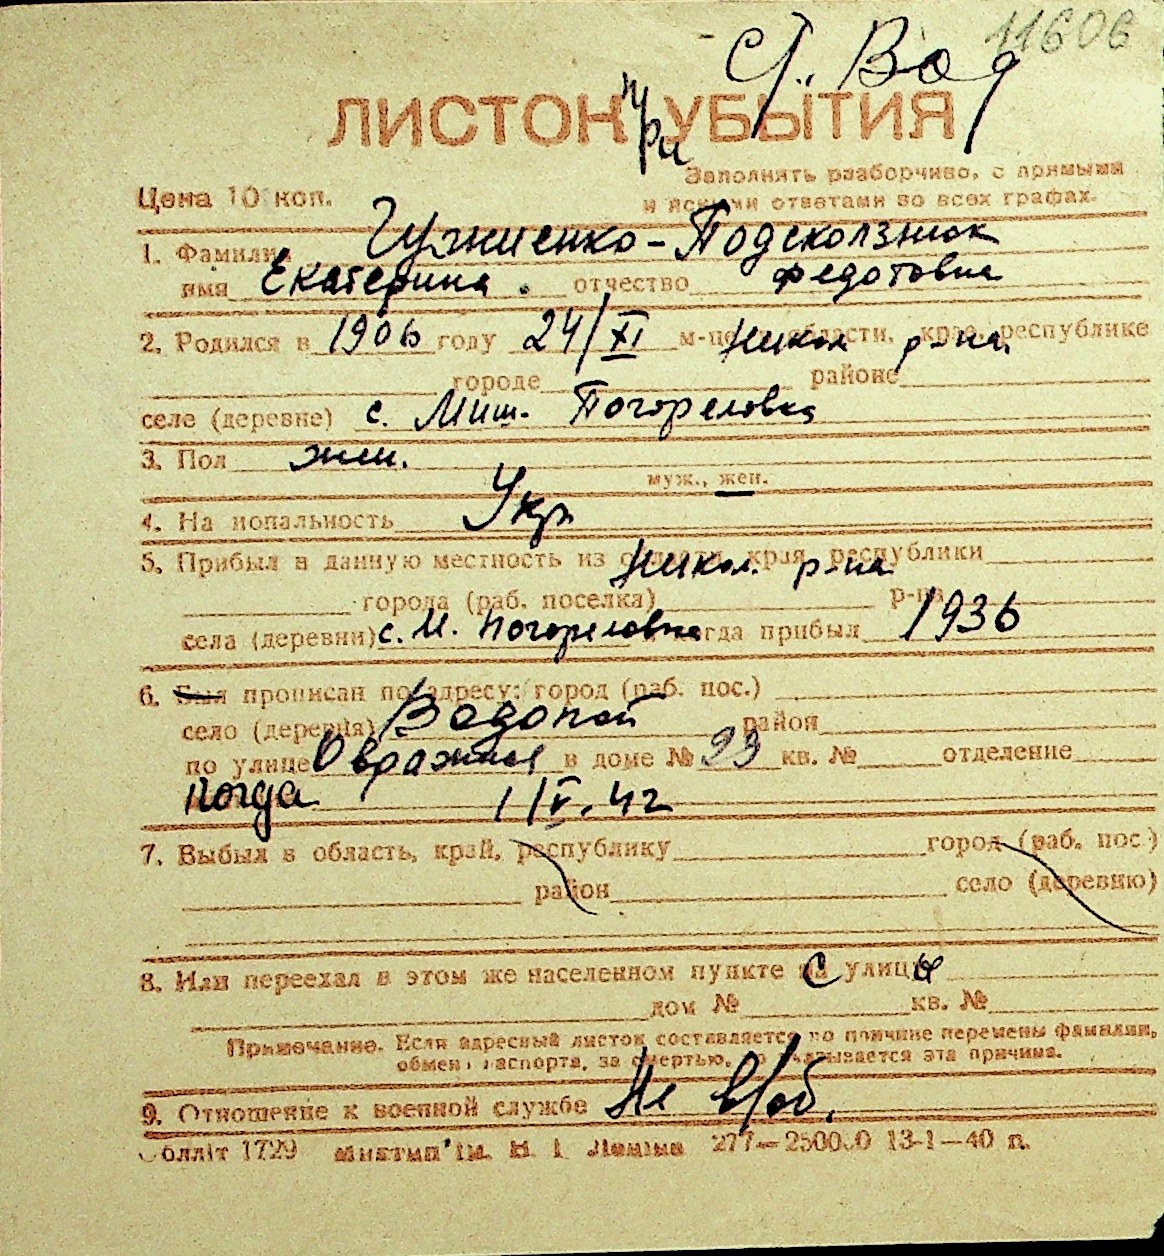 11606
Ст. Вод
ЛИСТОК при УБЫТИЯ
Заполнять разборчиво, с прямыми
Цена 10 коп. и ясными ответами во всех графах.
1. Фамилия Гужиенко-Подсколзнюк
имя Екатерина. отчество Федотовна
2. Родился в 1906 году 24/XI м-це области, края, республике Никол р-на,
городе районе
селе (деревне) с. Миш. Погореловка
3. Пол жен.
муж., жен.
4. Национальность Укр.
5. Прибыл в данную местность из области, края, республики Никол. р-на
города (раб. поселка) р-на
села (деревни) с. М. Погореловка когда прибыл 1936
6. Был прописан по адресу: город (раб. пос.)
село (деревня) Водопой район
по улице Овражная в доме № 29 кв. № отделение
Когда 1/V. 42
7. Выбыл в область, край, республику город (раб. пос.)
район село (деревню)
8. Или переехал в этом же населенном пункте с улицы
дом № кв. №
Примечание. Если адресный листок составляется по причине перемены фамилии,
обмена паспорта, за смертью, то указывается эта причина.
9. Отношение к военной службе Не в/об.
Облліт 1729 277—250000 13-1—40 п.